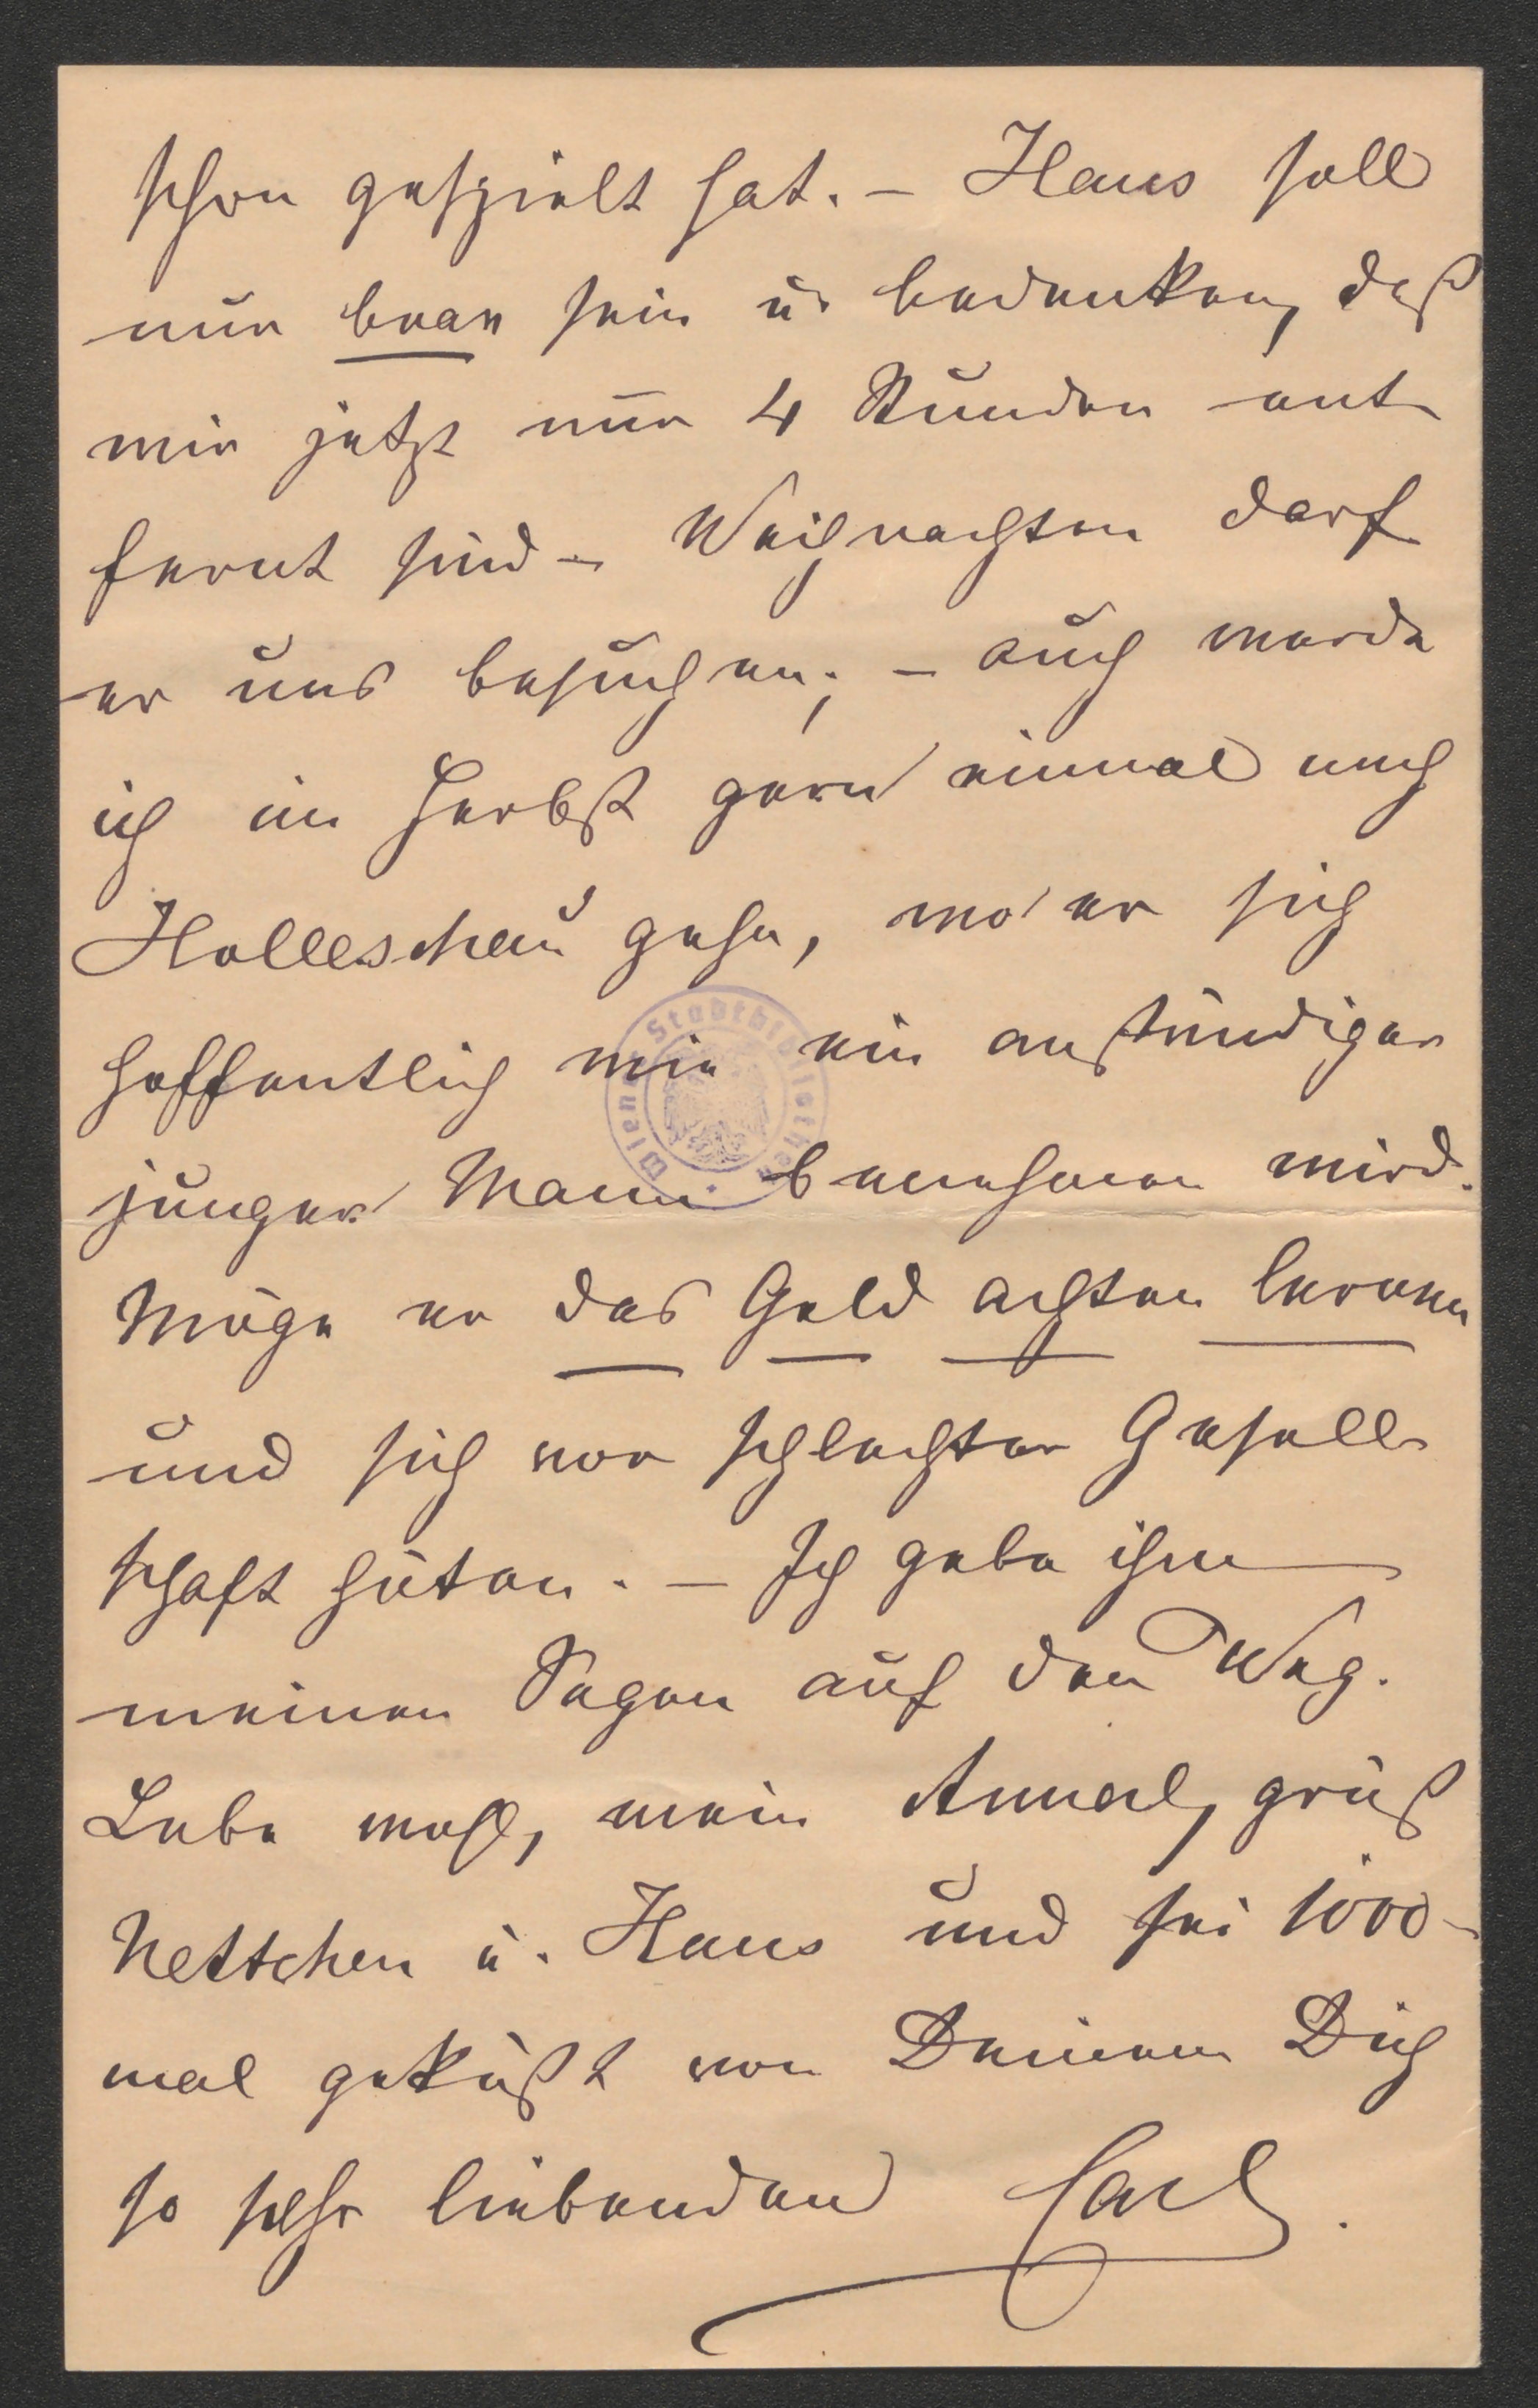 schon gespielt hat. – Hans soll
nur brav sein u. bedenken, daß
wir jetzt nur 4 Stunden ent-
fernt sind – Weihnachten darf
er uns besuchen; – auch werde
ich im Herbst gern einmal nach
Holleschau gehn, wo er sich
hoffentlich wie ein anständiger
junger Mann benehmen wird.
Möge er das Geld achten lernen
und sich vor schlechter Gesell-
schaft hüten. – Ich gebe ihm
meinen Segen auf den Weg.
Lebe wohl, mein Annerl, grüß
Nettchen u. Hans und sei 1000-
mal geküßt von Deinem Dich
so sehr liebenden Carl.
Wiener Stadtbibliothek